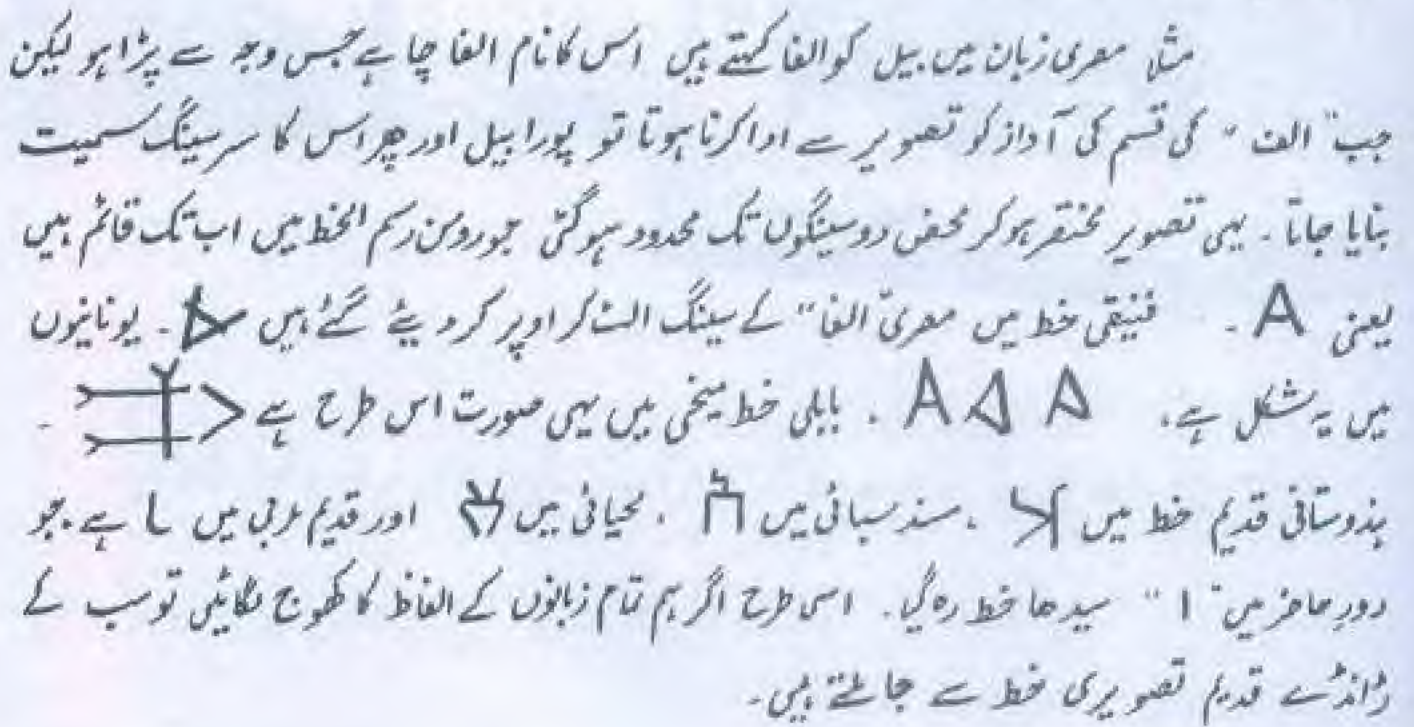 مثلاً مصری زبان میں بیل کو الفا کہتے ہیں اس کا نام الفا چاہے جس وجہ سے پڑا ہو لیکن
جب "الف" کی قسم کی آواز کو تصویر سے ادا کرنا ہوتا تو پورا بیل اور پھر اس کا سر سینگ سمیت
بنایا جاتا ۔ یہی تصویر مختصر ہو کر محض دو سینگوں تک محدود ہو گئی جو رومن رسم الخط میں اب تک قائم ہیں
یعنی A ۔ فنیقی خط میں مصری "الفا" کے سینگ الٹ کر اوپر کر دیئے گئے ہیں ۔ یونانیوں
میں یہ شکل ہے، A A A ۔ بابلی خط میخی میں یہی صورت اس طرح ہے ۔
ہندوستانی قدیم خط میں ، سبائی میں ، لحیانی میں اور قدیم عربی میں L ہے ۔ جو
دورِ حاضر میں "ا" سیدھا خط رہ گیا ۔ اسی طرح اگر ہم تمام زبانوں کے الفاظ کا کھوج لگائیں تو سب کے
ڈانڈے قدیم تصویری خط سے جا ملتے ہیں ۔